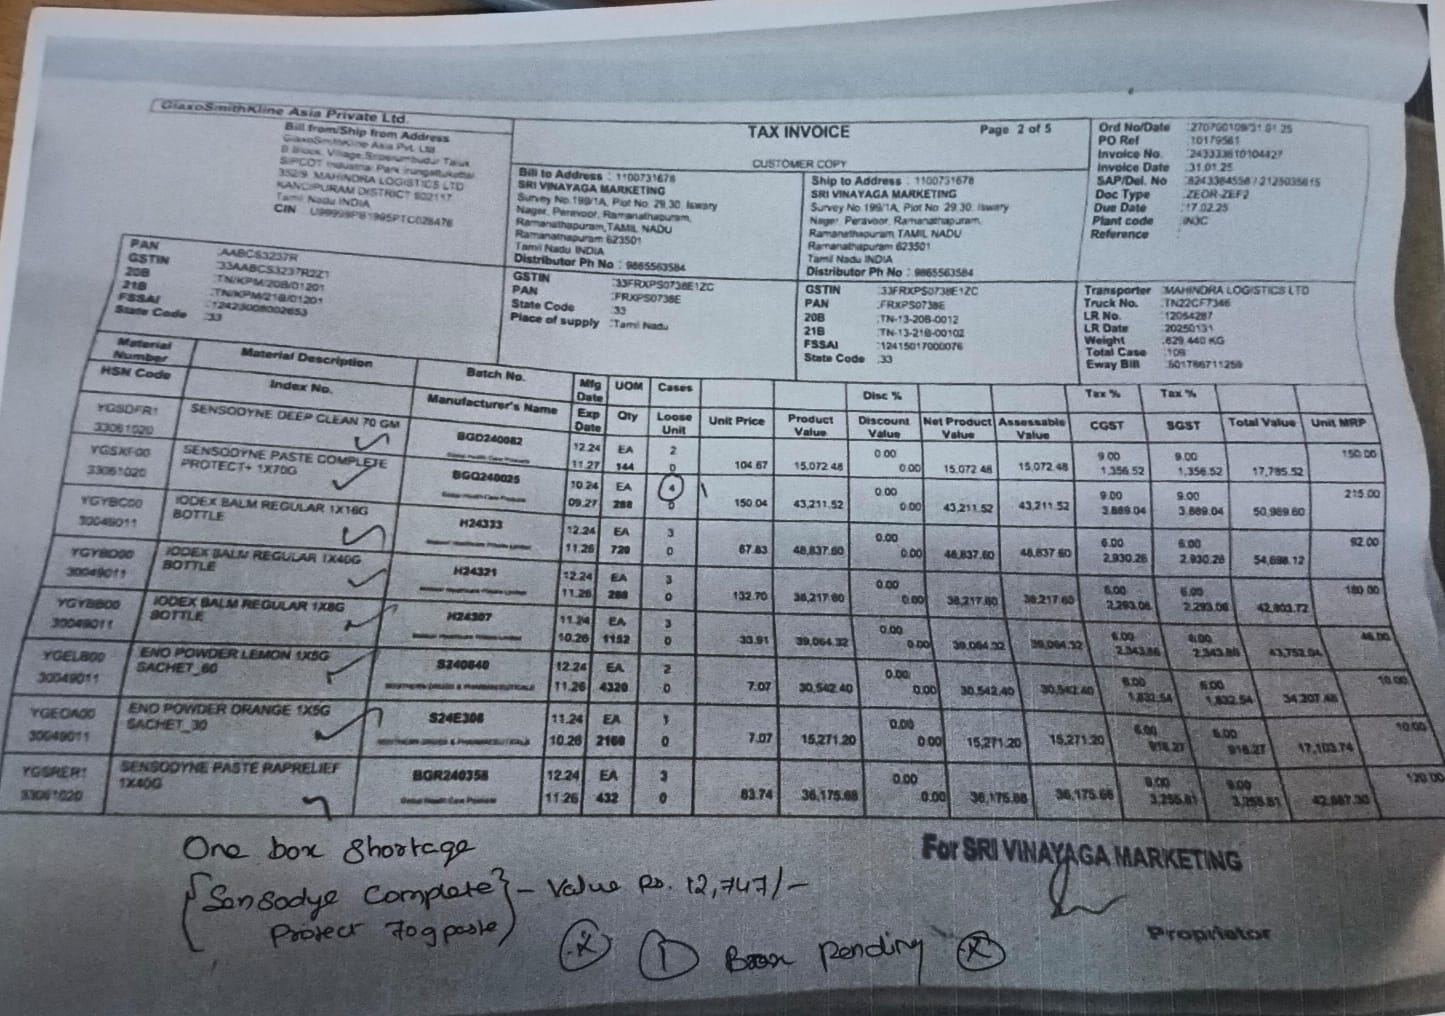 GlaxoSmithKline Asia Private Ltd.
Bill from/Ship from Address
GlaxoSmithKline Asia Pvt. Ltd
B Block, Village Sriperumbudur Taluk
SIPCOT Industrial Park Irungattukottai
352/9 MAHINDRA LOGISTICS LTD
KANCIPURAM DISTRICT 602117
Tamil Nadu INDIA
CIN
TAX INVOICE
Page 2 of 5
CUSTOMER COPY
Bill to Address : 1100731678
SRI VINAYAGA MARKETING
Survey No.199/1A, Plot No 29,30, Iswary
Nager, Peravoor, Ramanathapuram,
Ramanathapuram, TAMIL NADU
Ramanathapuram 623501
Tamil Nadu INDIA
Distributor Ph No : 9865563584
Ship to Address : 1100731678
SRI VINAYAGA MARKETING
Survey No. 199/1A, Plot No 29,30, Iswary
Nager, Peravoor, Ramanathapuram,
Ramanathapuram TAMIL NADU
Ramanathapuram 623501
Tamil Nadu INDIA
Distributor Ph No : 9865563584
Ord No/Date
PO Ref :10179561
Invoice No. :243333610104427
Invoice Date :31.01.25
SAP/Del. No :8243364558 / 2125035615
Doc Type :ZEOR-ZEF2
Due Date :17.02.25
Plant code :IN3C
Reference :
PAN :AABCS3237R
GSTIN :33AABCS3237R2Z1
20B :TN/KPM/20B/01201
21B :TN/KPM/21B/01201
FSSAI :12423008002653
State Code :33
GSTIN :33FRXPS0738E1ZC
PAN :FRXPS0738E
State Code :33
Place of supply :Tamil Nadu
GSTIN :33FRXPS0738E1ZC
PAN :FRXPS0738E
20B :TN-13-20B-0012
21B :TN-13-21B-00102
FSSAI :12415017000076
State Code :33
Transporter :MAHINDRA LOGISTICS LTD
Truck No. :TN22CF7346
LR No. :12054287
LR Date :20250131
Weight :629.440 KG
Total Case :109
Eway Bill :501786711259
Material Number Material Description Batch No. Mfg Date UOM Cases Disc % Tax % Tax %
HSN Code Index No. Manufacturer's Name Exp Date Qty Loose Unit Unit Price Product Value Discount Value Net Product Value Assessable Value CGST SGST Total Value Unit MRP
YGSDFR1 SENSODYNE DEEP CLEAN 70 GM BGD240082 12.24 EA 2 0.00 9.00 9.00 150.00
33061020 Global Health Care Products 11.27 144 0 104.67 15,072.48 0.00 15,072.48 15,072.48 1,356.52 1,356.52 17,785.52
YGSXF00 SENSODYNE PASTE COMPLETE PROTECT+ 1X70G BGQ240025 10.24 EA 4 0.00 9.00 9.00 215.00
33061020 Global Health Care Products 09.27 288 0 150.04 43,211.52 0.00 43,211.52 43,211.52 3,889.04 3,889.04 50,989.60
YGYBC00 IODEX BALM REGULAR 1X16G BOTTLE H24333 12.24 EA 3 0.00 6.00 6.00 92.00
30049011 11.26 720 0 67.83 48,837.60 0.00 48,837.60 48,837.60 2,930.26 2,930.26 54,698.12
YGYBD00 IODEX BALM REGULAR 1X40G BOTTLE H24321 12.24 EA 3 0.00 6.00 6.00 180.00
30049011 11.26 288 0 132.70 38,217.60 0.00 38,217.60 38,217.60 2,293.06 2,293.06 42,803.72
YGYBB00 IODEX BALM REGULAR 1X8G BOTTLE H24307 11.24 EA 3 0.00 6.00 6.00 46.00
30049011 10.26 1152 0 33.91 39,064.32 0.00 39,064.32 39,064.32 2,343.86 2,343.86 43,752.04
YGELB00 ENO POWDER LEMON 1X5G SACHET_60 S240840 12.24 EA 2 0.00 6.00 6.00 10.00
30049011 SOUTHERN DRUGS & PHARMACEUTICALS 11.26 4320 0 7.07 30,542.40 0.00 30,542.40 30,542.40 1,832.54 1,832.54 34,207.48
YGEOA00 ENO POWDER ORANGE 1X5G SACHET_30 S24E306 11.24 EA 1 0.00 6.00 6.00 10.00
30049011 SOUTHERN DRUGS & PHARMACEUTICALS 10.26 2160 0 7.07 15,271.20 0.00 15,271.20 15,271.20 916.27 916.27 17,103.74
YGSRER1 SENSODYNE PASTE RAPRELIEF 1X40G BGR240356 12.24 EA 3 0.00 9.00 9.00 120.00
33061020 Global Health Care Products 11.26 432 0 83.74 36,175.68 0.00 36,175.68 36,175.68 3,255.81 3,255.81 42,687.30
One box shortage
{Sensodye Complete} - Value Rs. 12,747/-
Protect 70g paste
1 Box Pending
For SRI VINAYAGA MARKETING
Proprietor